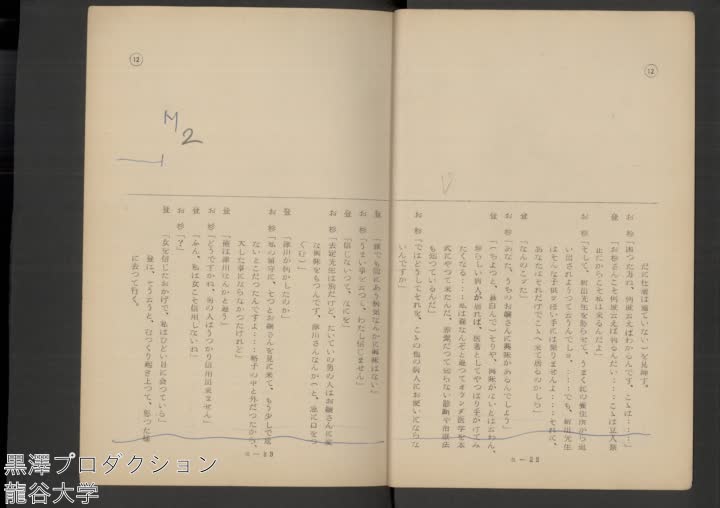 12
だに仕着は着ていない）を見廻す。
お杉「困つた事ね、何度云えばわかるんです、こゝは……」
登「お杉さんこそ何度云えば判るんだい……こゝは立入禁止だからこそ私は来るんだよ」
お杉「そして、新出先生を怒らせて、うまく此の養生所から追い出されようつて云うんでしょ、……でも、新出先生はそんな子供つぽい手には乗りませんよ……それに、あなたはそれだけでこゝへ来て居るのかしら」
登「なんのことだ」
お杉「あなた、うちのお嬢さんに興味があるんでしよう」
登「（ちよつと、鼻白んで）そりや、興味がないとは云わん、珍らしい病人が居れば、医者としてやつぱり手がけてみたくなる……私は蘭なんぞと違つてオランダ医学を本式にやつて来たんだ、
も知つているんだ」
お杉「ではどうしてそれを、こゝの他の病人にお使いにならないんですか」
a－28
12
M2
登「誰でも間にあう病気なんかに興味はない」
お杉「うまい事を云つて、わたし信じません」
登「信じないつて、なにを」
お杉「去定先生は別だけど、たいていの男の人はお嬢さんに変な興味をもつんです、津川さんなんか（と、急に口をつぐむ）」
登「津川が何かしたのか」
お杉「私の留守に、そつとお嬢さんを見に来て、もう少しで危ないとこだつたんですよ……格子の中と外だつたから、大した事にならなかつたけれど」
登「俺は津川なんかと違う」
お杉「どうですかね、男の人はうつかり信用出来ません」
登「ふん、私は女こそ信用しないね」
お杉「？」
登「女を信じたおかげで、私はひどい目に会つている」
登は、そう云うと、むつくり起き上つて、怒つた様に去つて行く。
a－29
黒澤プロダクション
龍谷大学